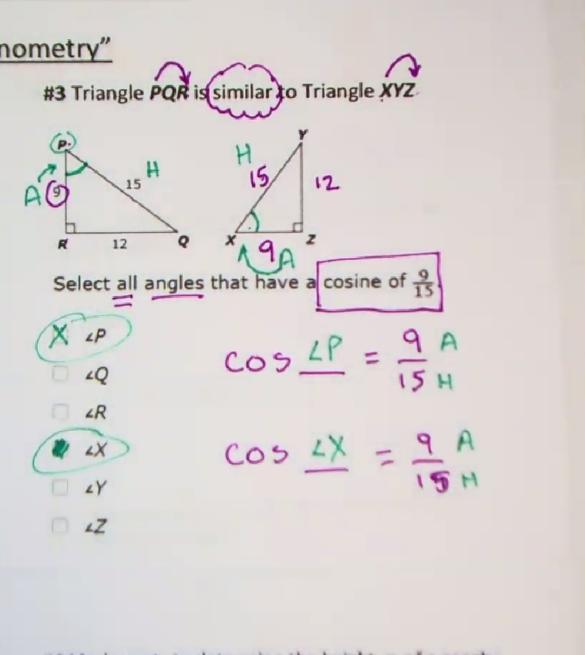 nometry"
#3 Triangle PQR is similar to Triangle XYZ.
P.
H
15
A 9
R 12 Q
Y
H
15
12
X 9 Z
A
Select all angles that have a cosine of 9/15
X ∠P
∠Q
∠R
∠X
∠Y
∠Z
cos ∠P = 9/15 A H
cos ∠X = 9/15 A H